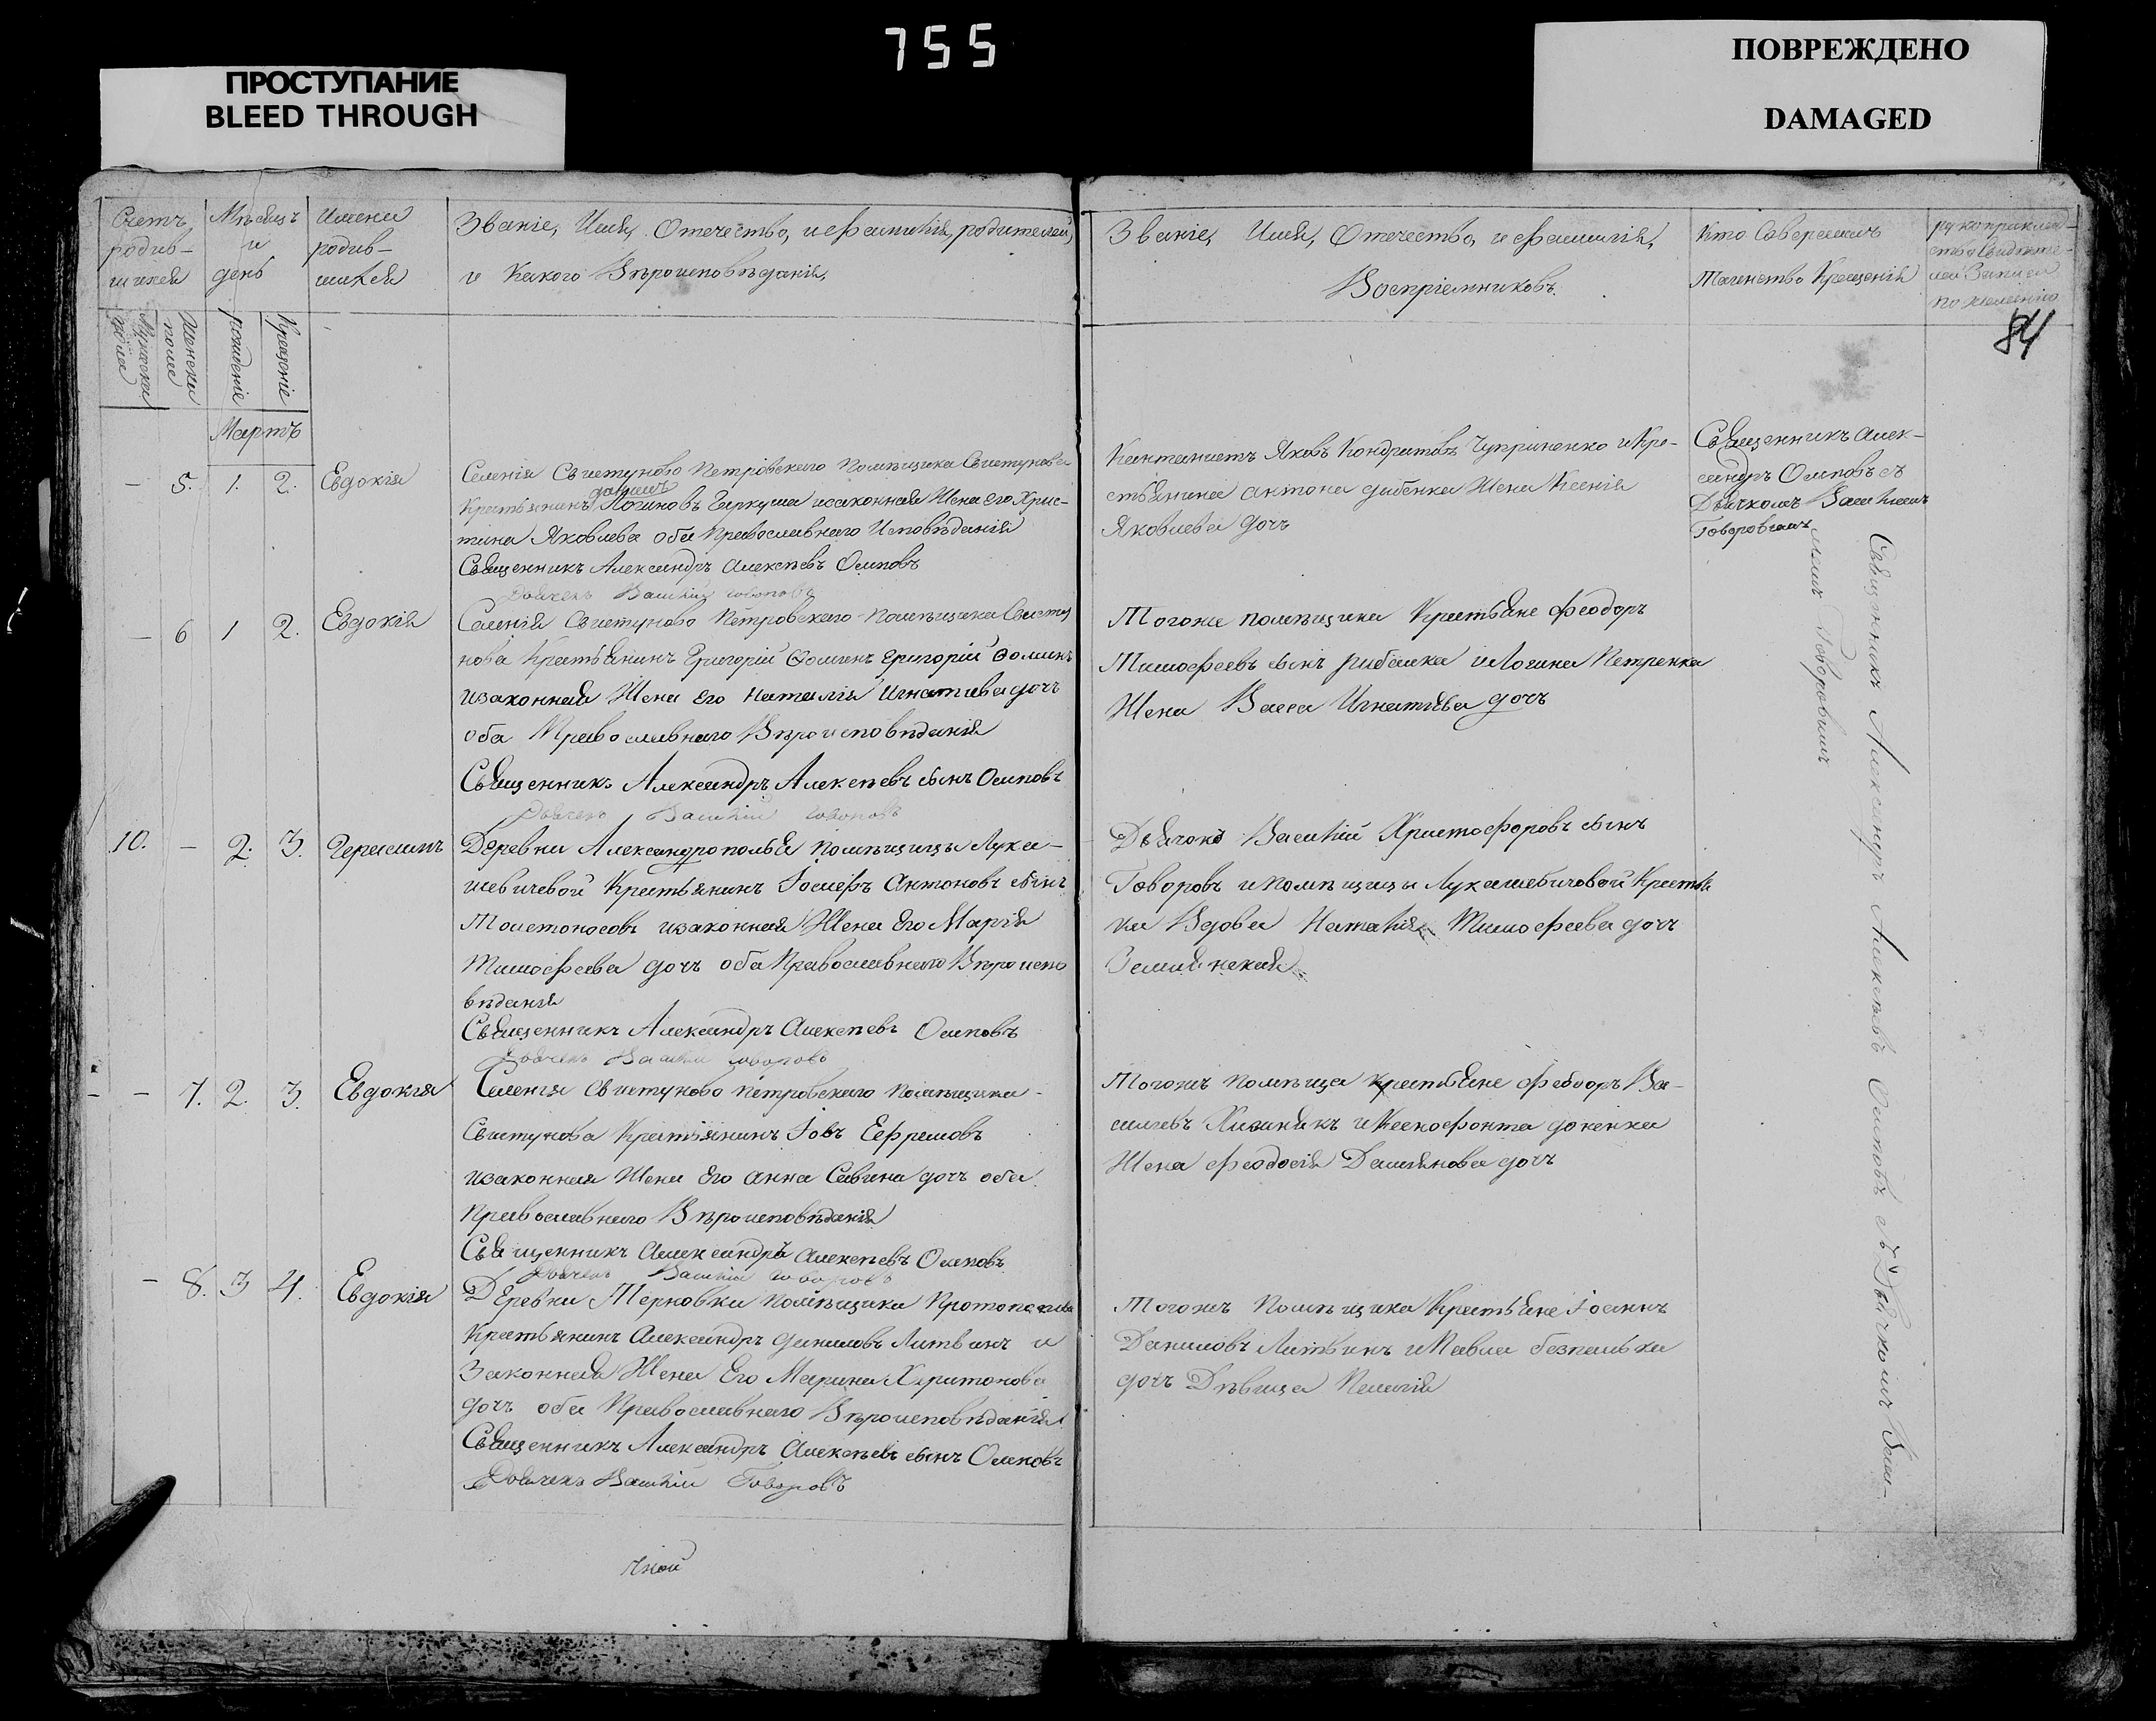 755
ПРОСТУПАНИЕ
BLEED THROUGH
ПОВРЕЖДЕНО
DAMAGED
Счетъ родив-шихся
Мѣсяцъ и день
Имена родив-шихся
Званіе, Имя, Отечество, и Фамилія, родителей,
и Какого Вѣроисповѣданія,
Званіе, Имя, Отечество, и Фамилія,
Воспріемниковъ.
Кто Совершалъ
Таинство Крещенія
рукоприклад-
ство свидѣте-
лей Записи
по желанію
84
Мужеска пола
Женска пола
рожденіе
Крещеніе
Мартъ
— 5. 1. 2. Евдокія
Селенія Свистуново Петровскаго помѣщика Свистунова
Крестьянинъ Логиновъ изаконная Жена его Хрис-
тина Яковлева оба Православнаго Исповѣданія
Священникъ Александръ Алексѣевъ Осиповъ
Дьячекъ Василій Говоровъ
Яковъ Кондратовъ Чуприненко и Кре-
стьянина Антона дибенка Жена Ксенія
Яковлева дочъ
Священникъ Алек-
сандръ Осиповъ съ
Дьячкомъ Васильемъ
Говоровымъ
— 6 1 2. Евдокія
Селенія Свистуново Петровскаго помѣщика Свисту
нова Крестьянинъ Григорій Фоминъ Григорій Фоминъ
изаконная Жена Его Наталія Игнатива дочъ
оба Православнаго Вѣроисповѣданія
Священникъ Александръ Алексѣевъ сынъ Осиповъ
Дьячекъ Василій Говоровъ
Тогоже помѣщика Крестьяне Феодоръ
Тимофеевъ сынъ рибалка и Логина Петренка
Жена Васса Игнатьва дочъ
10. — 2. 3. Герасимъ
Деревни Александрополья помѣщицы Лука-
шевичевой Крестьянинъ Іосифъ Антоновъ сынъ
Толстоносовъ изаконная Жена Его Марія
Тимофеева дочъ оба Православнаго Вѣроиспо
вѣданія
Священникъ Александръ Алексѣевъ Осиповъ
Дьячекъ Василій Говоровъ
Дьячокъ Василій Христофоровъ сынъ
Говоровъ и помѣщицы Лукашевичовой Крестьян
ка Вдова Наталія Тимофеева дочъ
Землянская
— 7. 2. 3. Евдокія
Селенія Свистуново петровскаго помѣщика
Свистунова Крестьянинъ Іовъ Ефремовъ
изаконная Жена Его Анна Савина дочъ оба
Православнаго Вѣроисповѣданія
Священникъ Александръ Алексѣевъ Осиповъ
Дьячекъ Василій Говоровъ
Тогожъ помѣщеца крестьяне Феодоръ Ва-
силевъ Хижнякъ и Ксенофонта доненка
Жена Феодосія Даміянова дочъ
— 8. 3 4. Евдокія
Деревни Терновки помѣщика Протопопова
Крестьянинъ Александръ Даниловъ Литвинъ и
Законная Жена Его Марина Харитонова
дочъ оба Православнаго Вѣроисповѣданія
Священникъ Александръ Алексѣевъ сынъ Осиповъ
Дьячекъ Василій Говоровъ
Тогожъ помѣщика Крестьяне Іоаннъ
Даниловъ Литвинъ и Павла безпалька
дочъ Дѣвица Пелагія
Священникъ Александръ Алексѣевъ Осиповъ съ Дьячкомъ Васи-
лемъ Говоровымъ